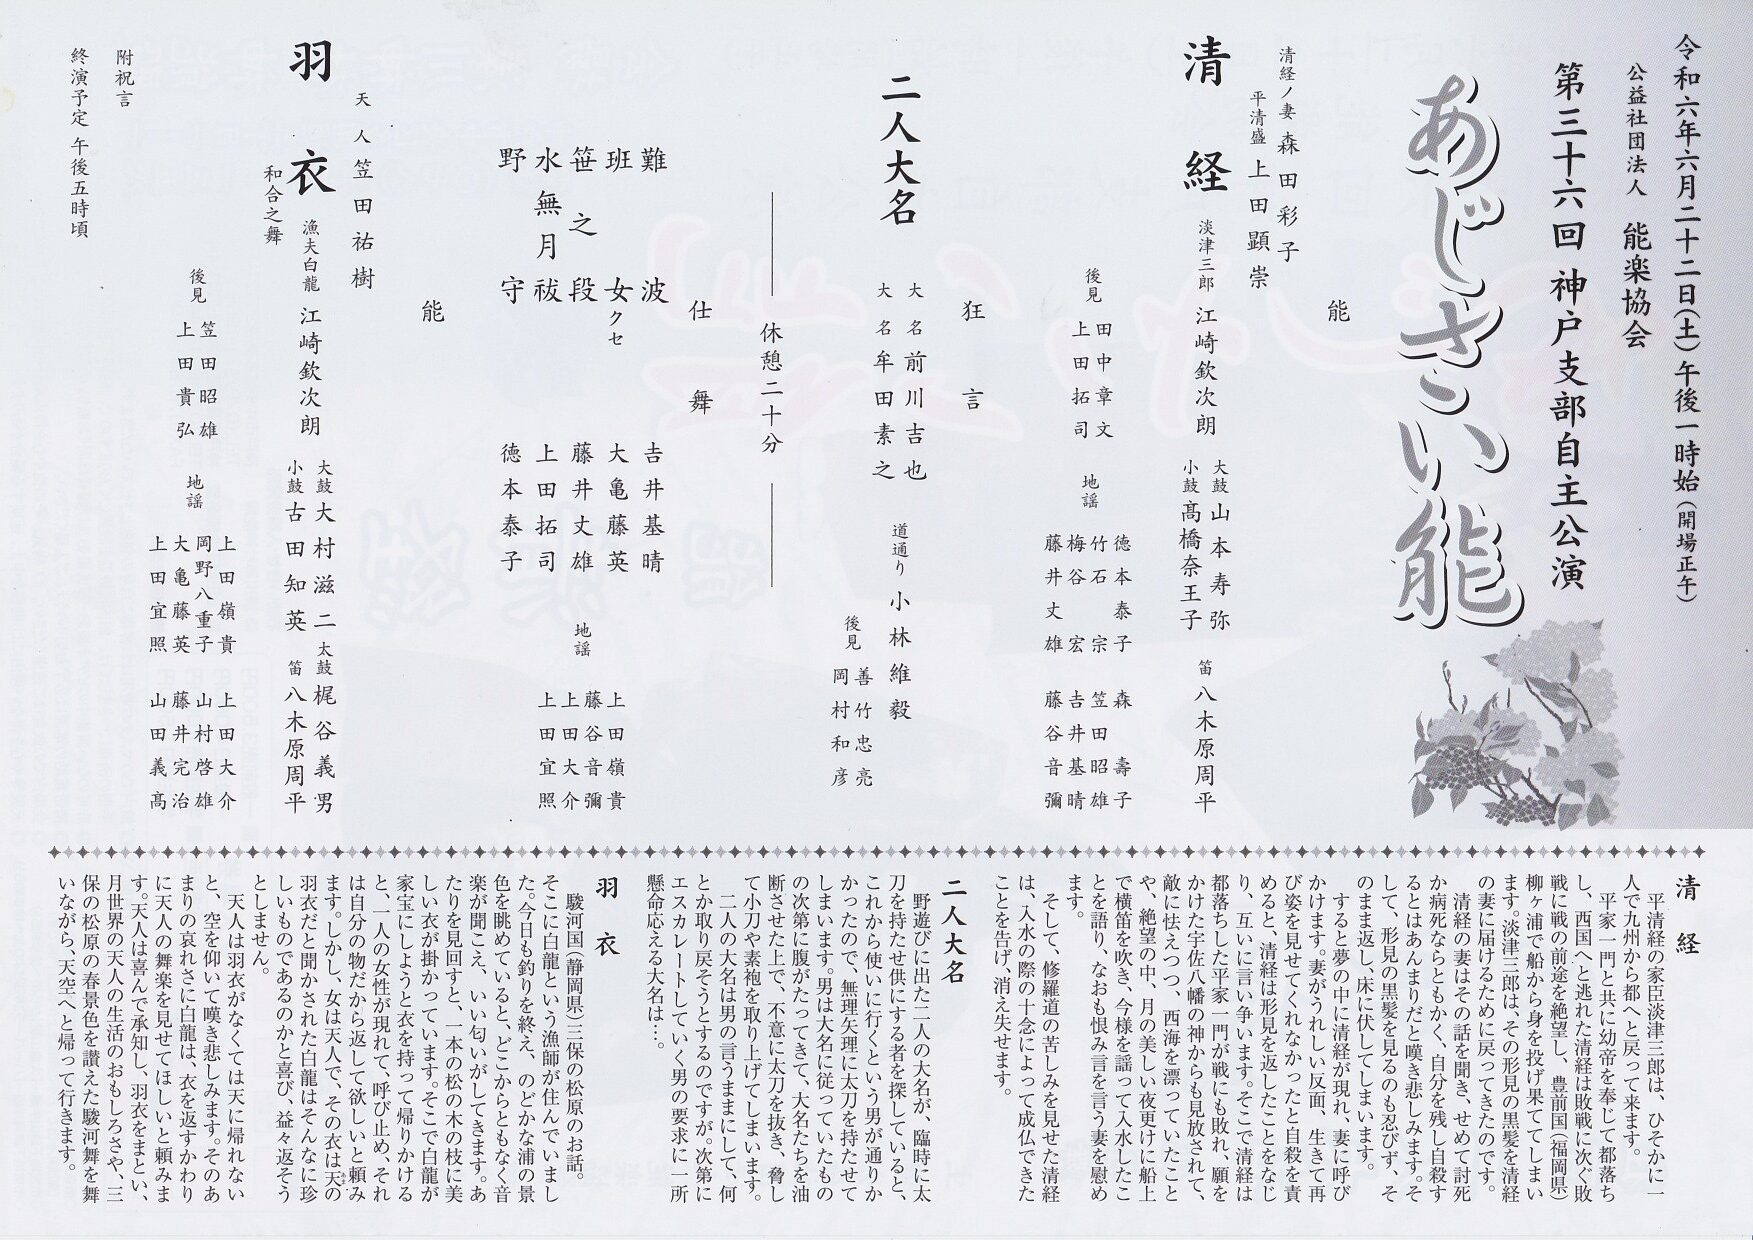 令和六年六月二十二日(土)午後一時始(開場正午)
公益社団法人 能楽協会
第三十六回 神戸支部自主公演
あじさい能
能
清経ノ妻 森田彩子
平清盛 上田顕崇
清経
淡津三郎 江崎欽次朗
大鼓 山本寿弥
小鼓 髙橋奈王子
笛 八木原周平
後見
田中章文
上田拓司
地謡
徳本泰子 森壽子
竹石宗 笠田昭雄
梅谷宏 吉井基晴
藤井丈雄 藤谷音彌
狂言
二人大名
大名 前川吉也
大名 牟田素之
道通り 小林維毅
後見
善竹忠亮
岡村和彦
休憩二十分
仕舞
難波 吉井基晴
班女クセ 大亀藤英
笹之段 藤井丈雄
水無月祓 上田拓司
野守 徳本泰子
地謡
上田嶺貴
藤谷音彌
上田大介
上田宜照
能
天人 笠田祐樹
羽衣
和合之舞
漁夫白龍 江崎欽次朗
大鼓 大村滋二
小鼓 古田知英
太鼓 梶谷義男
笛 八木原周平
後見
笠田昭雄
上田貴弘
地謡
上田嶺貴 上田大介
岡野八重子 山村啓雄
大亀藤英 藤井完治
上田宜照 山田義髙
附祝言
終演予定 午後五時頃
清経
平清経の家臣淡津三郎は、ひそかに一
人で九州から都へと戻って来ます。
平家一門と共に幼帝を奉じて都落ち
し、西国へと逃れた清経は敗戦に次ぐ敗
戦に戦の前途を絶望し、豊前国(福岡県)
柳ヶ浦で船から身を投げ果ててしまい
ます。淡津三郎は、その形見の黒髪を清経
の妻に届けるために戻ってきたのです。
清経の妻はその話を聞き、せめて討死
か病死ならともかく、自分を残し自殺す
るとはあんまりだと嘆き悲しみます。そ
して、形見の黒髪を見るのも忍びず、そ
のまま返し、床に伏してしまいます。
すると夢の中に清経が現れ、妻に呼び
かけます。妻がうれしい反面、生きて再
び姿を見せてくれなかったと自殺を責
めると、清経は形見を返したことをなじ
り、互いに言い争います。そこで清経は
都落ちした平家一門が戦にも敗れ、願を
かけた宇佐八幡の神からも見放されて、
敵に怯えつつ、西海を漂っていたこと
や、絶望の中、月の美しい夜更けに船上
で横笛を吹き、今様を謡って入水したこ
とを語り、なおも恨み言を言う妻を慰め
ます。
そして、修羅道の苦しみを見せた清経
は、入水の際の十念によって成仏できた
ことを告げ、消え失せます。
二人大名
野遊びに出た二人の大名が、臨時に太
刀を持たせ供にする者を探していると、
これから使いに行くという男が通りか
かったので、無理矢理に太刀を持たせて
しまいます。男は大名に従っていたもの
の次第に腹がたってきて、大名たちを油
断させた上で、不意に太刀を抜き、脅し
て小刀や素袍を取り上げてしまいます。
二人の大名は男の言うままにして、何
とか取り戻そうとするのですが。次第に
エスカレートしていく男の要求に一所
懸命応える大名は…。
羽衣
駿河国(静岡県)三保の松原のお話。
そこに白龍という漁師が住んでいまし
た。今日も釣りを終え、のどかな浦の景
色を眺めていると、どこからともなく音
楽が聞こえ、いい匂いがしてきます。あ
たりを見回すと、一本の松の木の枝に美
しい衣が掛かっています。そこで白龍が
家宝にしようと衣を持って帰りかける
と、一人の女性が現れて、呼び止め、それ
は自分の物だから返して欲しいと頼み
ます。しかし、女は天人で、その衣は天の
羽衣だと聞かされた白龍はそんなに珍
しいものであるのかと喜び、益々返そう
としません。
天人は羽衣がなくては天に帰れない
と、空を仰いで嘆き悲しみます。そのあ
まりの哀れさに白龍は、衣を返すかわり
に天人の舞楽を見せてほしいと頼みま
す。天人は喜んで承知し、羽衣をまとい、
月世界の天人の生活のおもしろさや、三
保の松原の春景色を讃えた駿河舞を舞
いながら、天空へと帰って行きます。